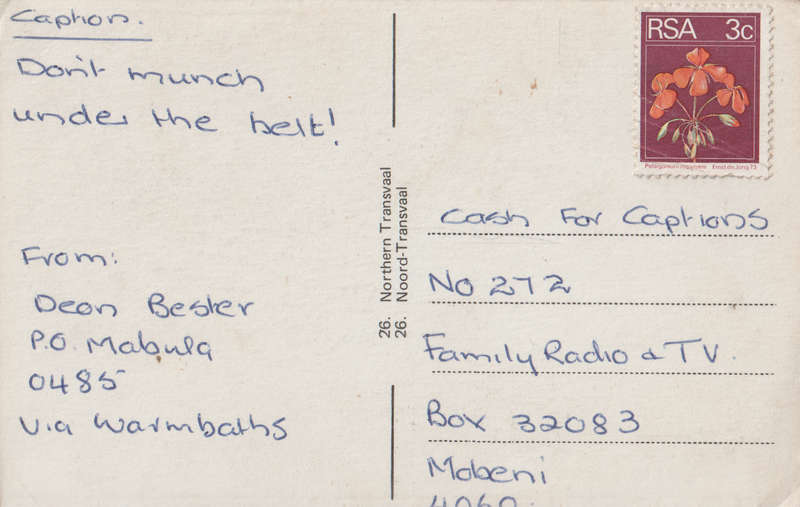 Caption.
Don't munch
under the belt!
From:
Deon Bester
P.O. Mabula
0485
Via Warmbaths
26. Northern Transvaal
26. Noord-Transvaal
RSA 3c
Cash For Captions
No 272
Family Radio & TV.
Box 32083
Mobeni
4060